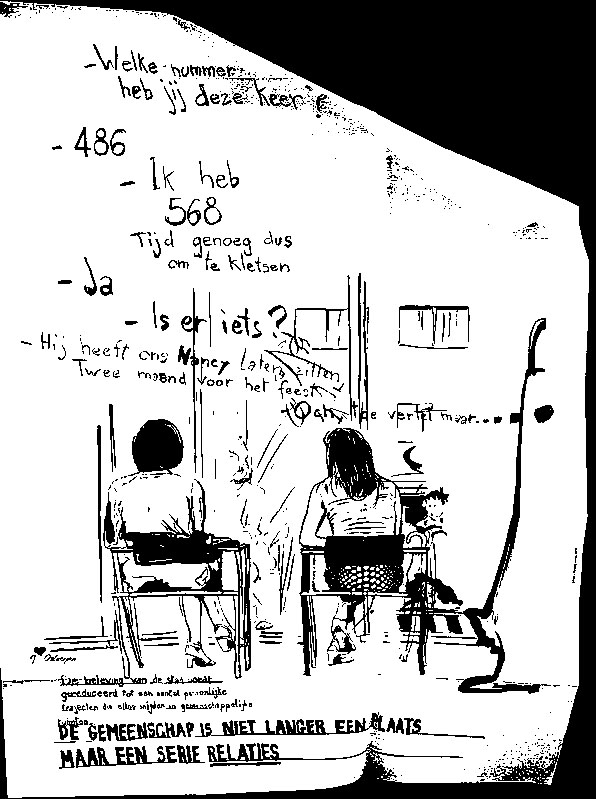 - Welke nummer
heb jij deze keer?
- 486
- Ik heb
568
Tijd genoeg dus
om te kletsen
- Ja
- Is er iets?
- Hij heeft ons Nancy laten zitten
Twee maand voor het feest
- Oah, toe vertel maar....
I ♥ Antwerpen
De beleving van de stad wordt
gereduceerd tot een aantal persoonlijke
trajecten die elkaar snijden in gemeenschappelijke
ruimtes.
DE GEMEENSCHAP IS NIET LANGER EEN PLAATS
MAAR EEN SERIE RELATIES